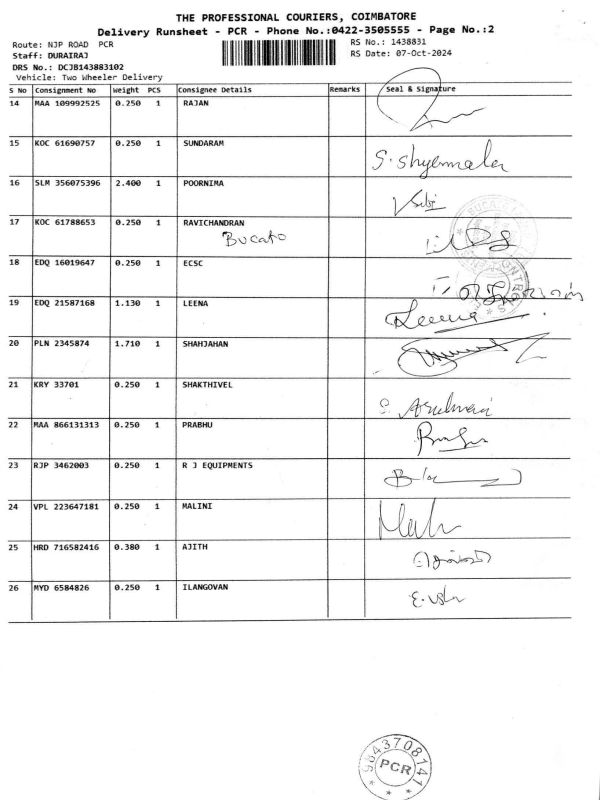 THE PROFESSIONAL COURIERS, COIMBATORE
Delivery Runsheet - PCR - Phone No.:0422-3505555 - Page No.:2
Route: NJP ROAD PCR
RS No.: 1438831
Staff: DURAIRAJ
RS Date: 07-Oct-2024
DRS No.: DCJB143883102
Vehicle: Two Wheeler Delivery
S No Consignment No Weight PCS Consignee Details Remarks Seal & Signature
14 MAA 109992525 0.250 1 RAJAN
15 KOC 61690757 0.250 1 SUNDARAM S. Shyamala
16 SLM 356075396 2.400 1 POORNIMA
17 KOC 61788653 0.250 1 RAVICHANDRAN
Bucato
18 EDQ 16019647 0.250 1 ECSC
19 EDQ 21587168 1.130 1 LEENA Leena
20 PLN 2345874 1.710 1 SHAHJAHAN
21 KRY 33701 0.250 1 SHAKTHIVEL
22 MAA 866131313 0.250 1 PRABHU
23 RJP 3462003 0.250 1 R J EQUIPMENTS
24 VPL 223647181 0.250 1 MALINI
25 HRD 716582416 0.380 1 AJITH
26 MYD 6584826 0.250 1 ILANGOVAN
9843708141
PCR